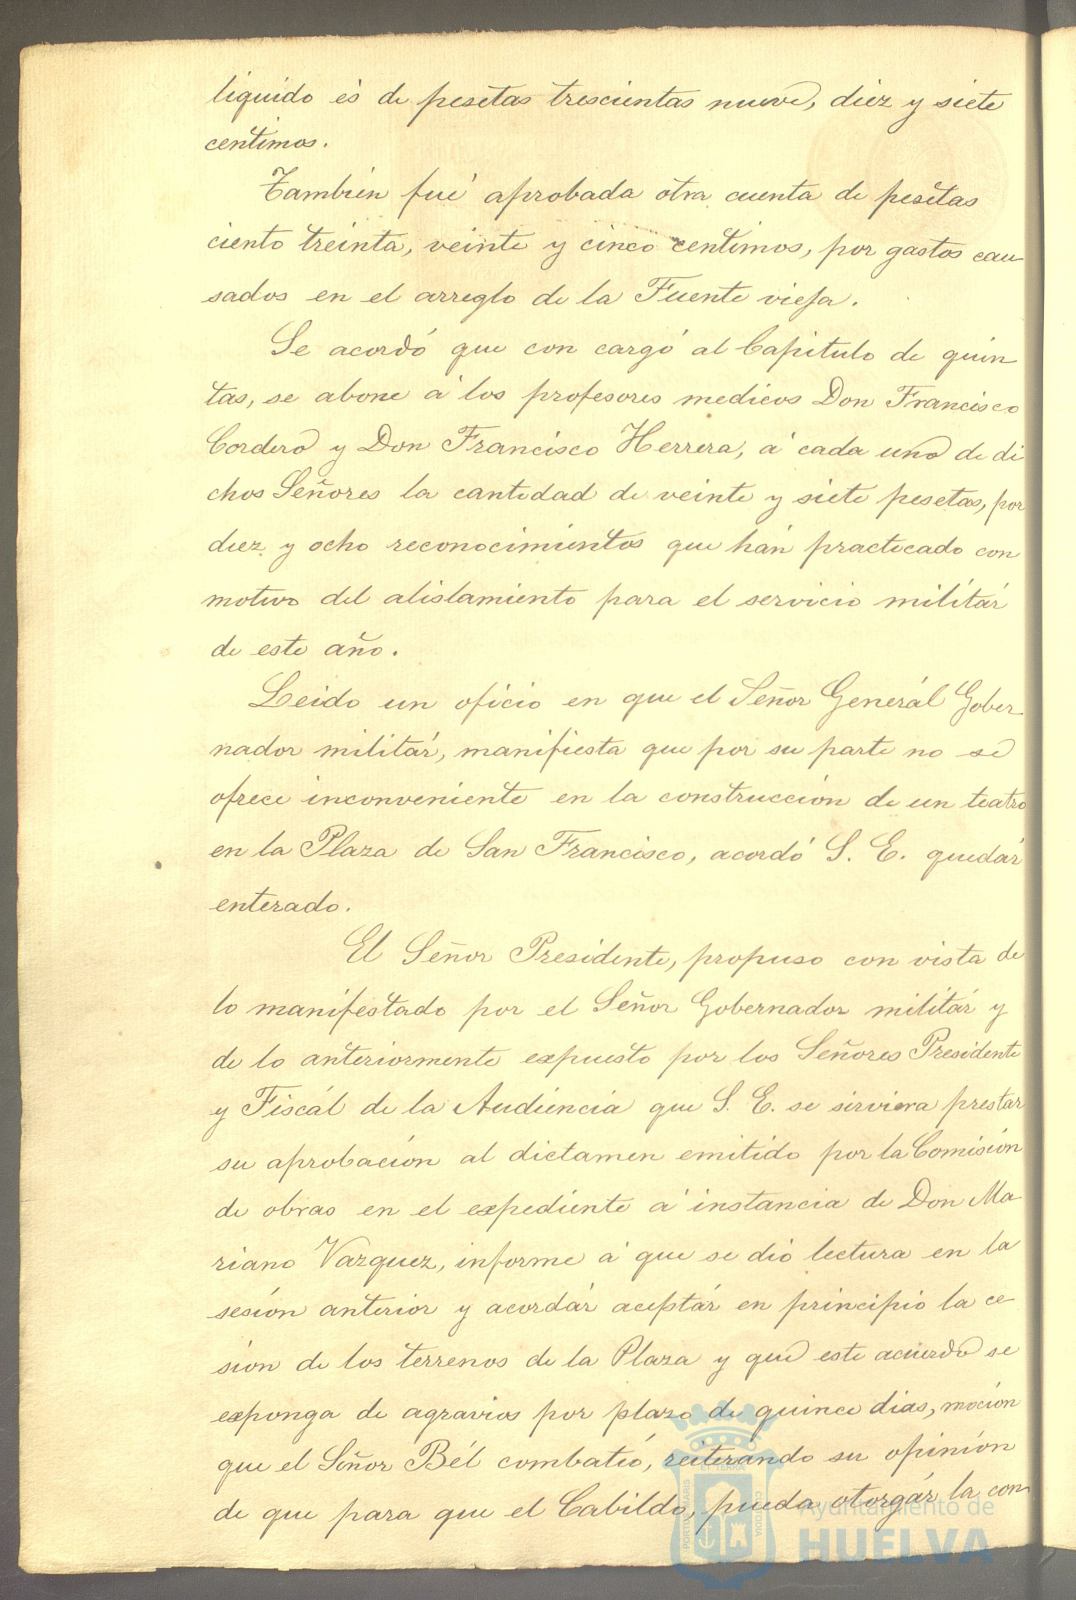 liquido és de pesetas trescientas nueve, diez y siete
centimos.
También fué aprobada otra cuenta de pesetas
ciento treinta, veinte y cinco centimos, por gastos cau
sados en el arreglo de la Fuente vieja.
Se acordó que con cargó al Capitulo de quin
tas, se abone á los profesores medicos Don Francisco
Cordero y Don Francisco Herrera, á cada uno de di
chos Señores la cantidad de veinte y siete pesetas, por
diez y ocho reconocimientos que hán practicado con
motivo del alislamiento para el servicio militár
de este año.
Leido un oficio en que el Señor Generál Gober
nador militár, manifiesta que por su parte no se
ofrece inconveniente en la construcción de un teatro
en la Plaza de San Francisco, acordó S. E. quedár
enterado.
El Señor Presidente, propuso con vista de
lo manifestado por el Señor Gobernador militár y
de lo anteriormente expuesto por los Señores Presidente
y Fiscál de la Audiencia que S. E. se sirviera prestar
su aprobación al dictamen emitido por la Comisión
de obras en el expediente á instancia de Don Ma
riano Vazquez, informe á que se dió lectura en la
sesión anterior y acordár aceptár en principio la ce
sión de los terrenos de la Plaza y que este acuerdo se
exponga de agravios por plazo de quince dias, moción
que el Señor Bél combatió, reiterando su opinión
de que para que el Cabildo, pueda otorgár la con
Ayuntamiento de
HUELVA